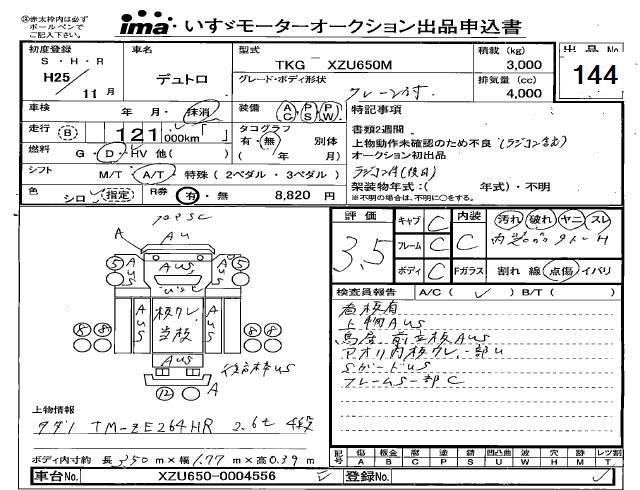 ㊟赤太枠内は必ず
ボールペンで
ご記入下さい。
ima いすゞモーターオークション出品申込書
初度登録 車名 型式 積載 (kg) 出品No
S・H・R
TKG - XZU650M 3,000
H25/11月 デュトロ
グレード・ボディ形状 排気量 (cc) 144
クレーン付 4,000
車検 年 月・抹消 装備 AC・PS・PW 特記事項
走行 B 121,000km「 」 タコグラフ 書類2週間
有・無 別体 上物動作未確認のため不良(ラジコン含む)
燃料 G・D・HV 他( ) ( 年 月) オークション初出品
シフト M/T・A/T・特殊(2ペダル・3ペダル) ラジコン付(後日)
架装物年式:( 年式)・不明
色 シロ(指定) R券 有・無 8,820 円 ※不明の場合は、不明に○をする。
評価 キャブ C 内装 汚れ・破れ・ヤニ・スレ
3.5 フレーム C C
ボディ C Fガラス 割れ 線 点傷 イバリ
検査員報告 A/C( ✓ ) B/T( )
看板有
上物AUS
鳥居 前立板AUS
アオリ内板クレ、一部U
SガードUS
フレームS一部C
A
AU
5 5
AUS
AUS
AUS
8 8 8 8
AUS
AUS
板クレ
AUS
12 A
上物情報
タダノ TM-ZE264HR 2.6t 4段
ボディ内寸約 長3.50m×幅1.77m×高0.39m
記号 傷 A 板金 B 腐 C 塗 P 錆 S 凹凸曲 U 波 W 穴 H 跡 M レツ割 T
車台No. XZU650-0004556 登録No.